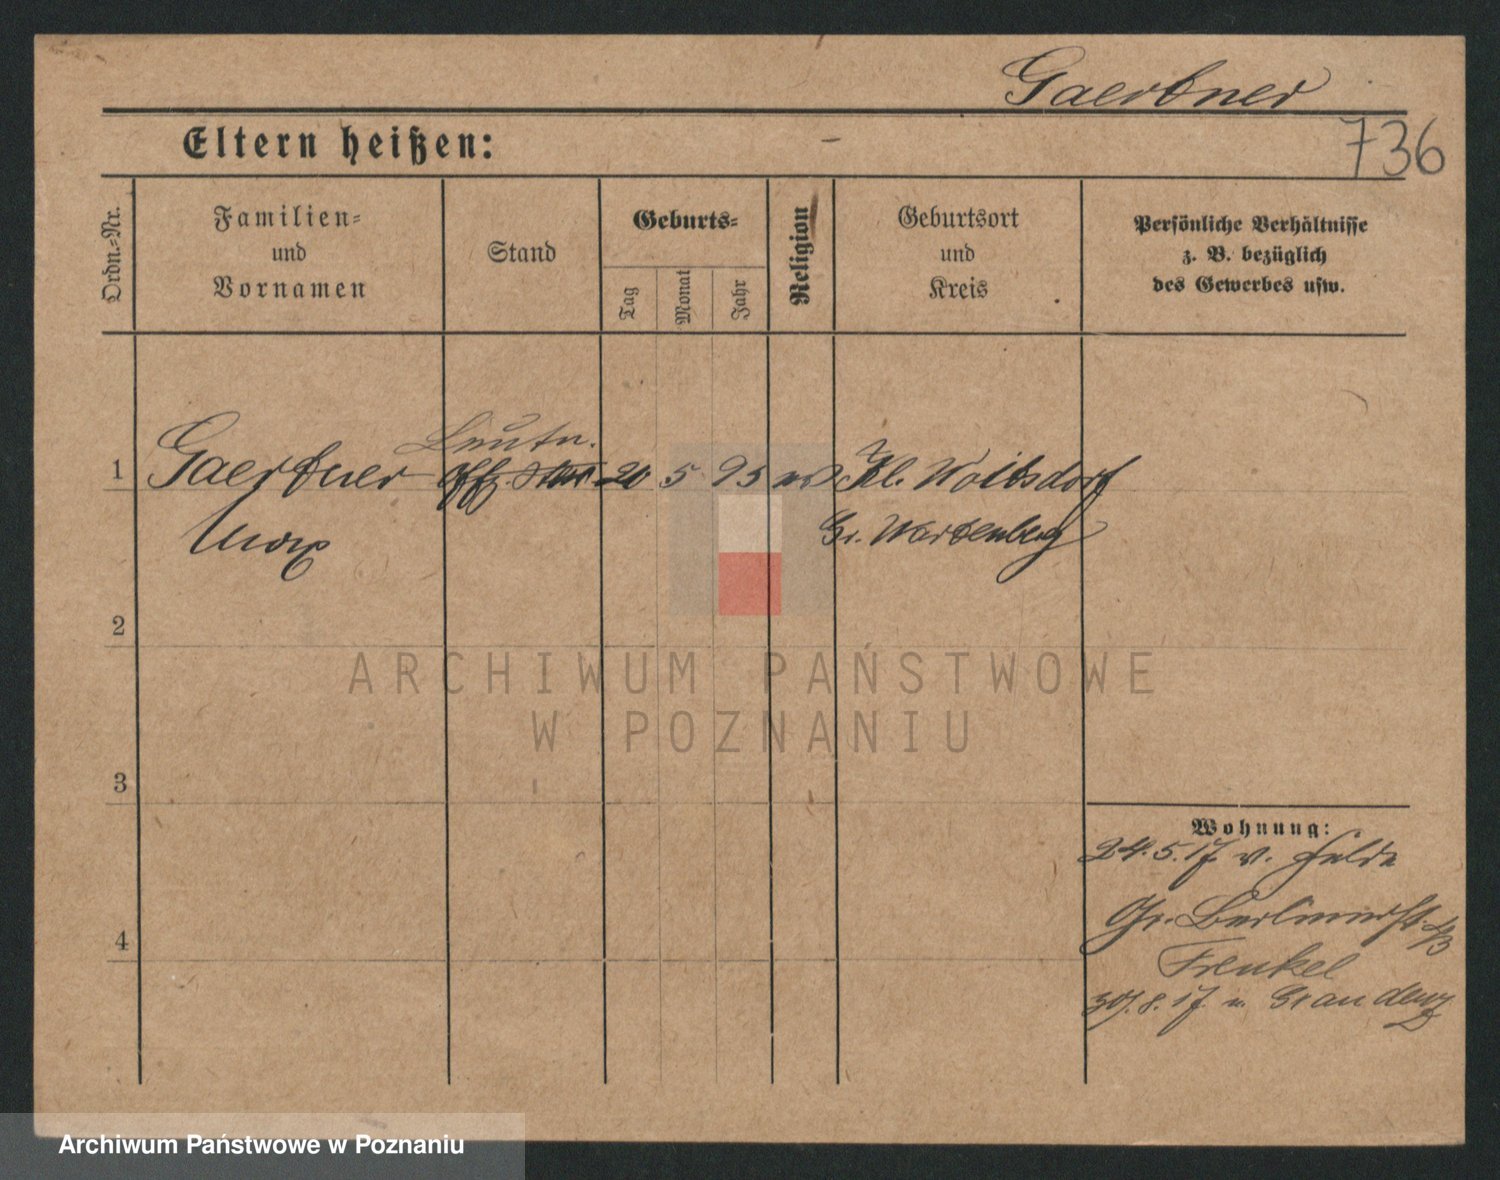 Gaertner
Eltern heißen:
736
Ordn.-Nr.
Familien-
und
Vornamen
Stand
Geburts-
Tag
Monat
Jahr
Religion
Geburtsort
und
Kreis
Persönliche Verhältnisse
z. B. bezüglich
des Gewerbes usw.
Leutn.
1 Gaertner 20 5 95 Kl. Woitsdorf
Max Gr. Wartenberg
2
ARCHIWUM PAŃSTWOWE
W POZNANIU
3
Wohnung:
24.5.17. v. Felde
4 Gr. Berlinerst.
Frenkel
30/.8.17. n. Graudenz
Archiwum Państwowe w Poznaniu